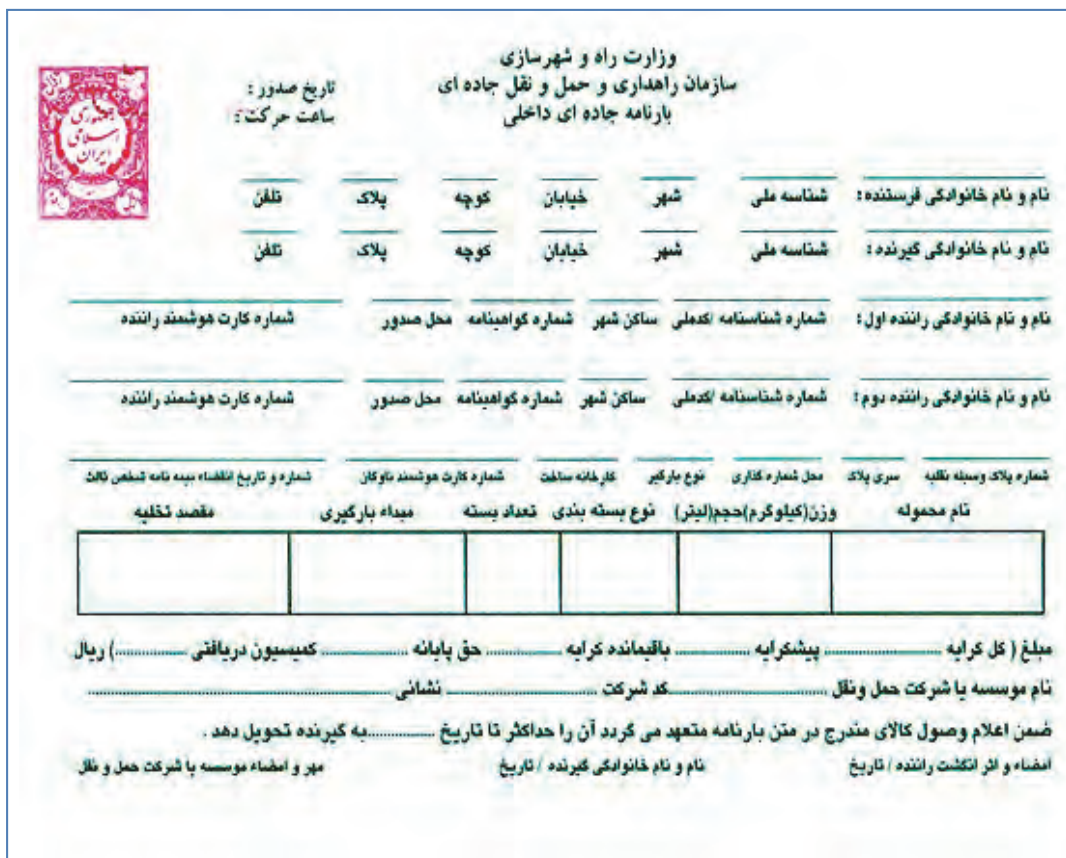 وزارت راه و شهرسازی
سازمان راهداری و حمل و نقل جاده ای
بارنامه جاده ای داخلی
تاریخ صدور :
ساعت حرکت :
جمهوری
اسلامی
ایران
نام و نام خانوادگی فرستنده : شناسه ملی شهر خیابان کوچه پلاک تلفن
نام و نام خانوادگی گیرنده : شناسه ملی شهر خیابان کوچه پلاک تلفن
نام و نام خانوادگی راننده اول : شماره شناسنامه /کدملی ساکن شهر شماره گواهینامه محل صدور شماره کارت هوشمند راننده
نام و نام خانوادگی راننده دوم : شماره شناسنامه /کدملی ساکن شهر شماره گواهینامه محل صدور شماره کارت هوشمند راننده
شماره پلاک وسیله نقلیه سری پلاک محل شماره گذاری نوع بارگیر کارخانه ساخت شماره کارت هوشمند ناوگان شماره و تاریخ انقضاء بیمه نامه شخص ثالث
نام محموله وزن(کیلوگرم)حجم(لیتر) نوع بسته بندی تعداد بسته مبداء بارگیری مقصد تخلیه
مبلغ ( کل کرایه .................. پیشکرایه .............. باقیمانده کرایه .............. حق پایانه .............. کمیسیون دریافتی ..............) ریال
نام موسسه یا شرکت حمل ونقل ........................ کد شرکت ........................ نشانی ................................................
ضمن اعلام وصول کالای مندرج در متن بارنامه متعهد می گردد آن را حداکثر تا تاریخ ..............به گیرنده تحویل دهد .
امضاء و اثر انگشت راننده / تاریخ نام و نام خانوادگی گیرنده / تاریخ مهر و امضاء موسسه یا شرکت حمل و نقل